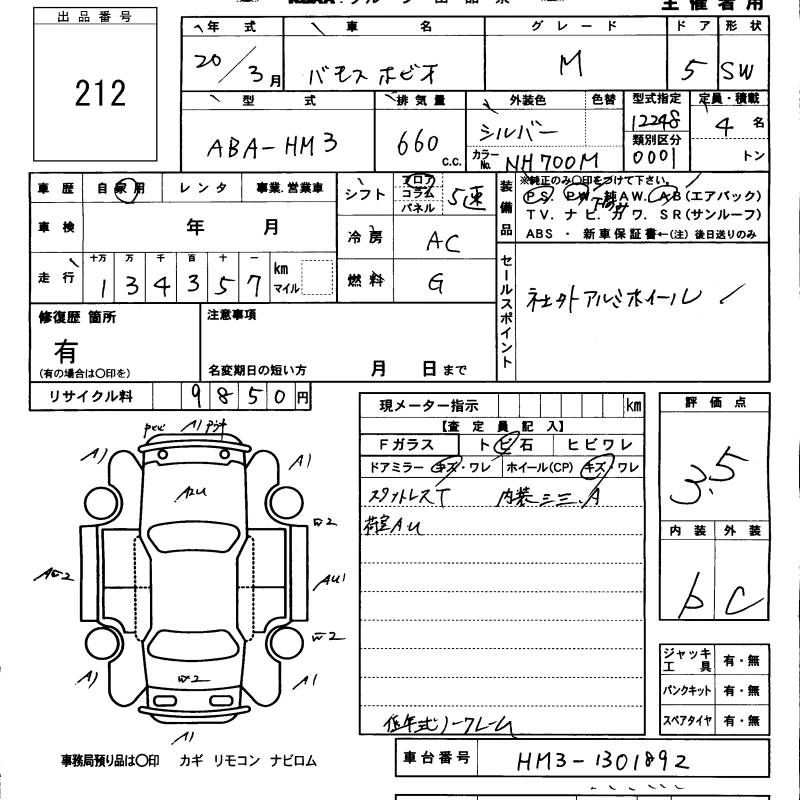 主催者用
出品番号
212
年式 車名 グレード ドア 形状
20/3月 バモスホビオ M 5 SW
型式 排気量 外装色 色替 型式指定 定員・積載
ABA-HM3 660 c.c. シルバー 12248 4名
類別区分
カラーNo. NH700M 0001 トン
車歴 自家用 レンタ 事業.営業車
シフト フロア コラム パネル 5速
装備品
※純正のみ○印をつけて下さい。
PS. PW. 純AW. AB(エアバック)
TV. ナビ. カワ. SR(サンルーフ)
ABS ・ 新車保証書←(注)後日送りのみ
車検 年 月
冷房 AC
走行 十万 万 千 百 十 一
134357 km マイル
燃料 G
セールスポイント
社外アルミホイール
修復歴 箇所
有
(有の場合は○印を)
注意事項
名変期日の短い方 月 日まで
リサイクル料 9850円
現メーター指示 km
【査定員記入】
Fガラス トビ石 ヒビワレ
ドアミラー キズ・ワレ ホイール(CP) キズ・ワレ
スタットレスT 内装ミミ.A
荷室AU
低年式ノークレーム
評価点
3.5
内装 外装
b C
A1 A1
A1 A1
A2U
W2
AU1
W2
W2
A1 A1
A1
ジャッキ工具 有・無
パンクキット 有・無
スペアタイヤ 有・無
事務局預り品は○印 カギ リモコン ナビロム
車台番号 HM3-1301892